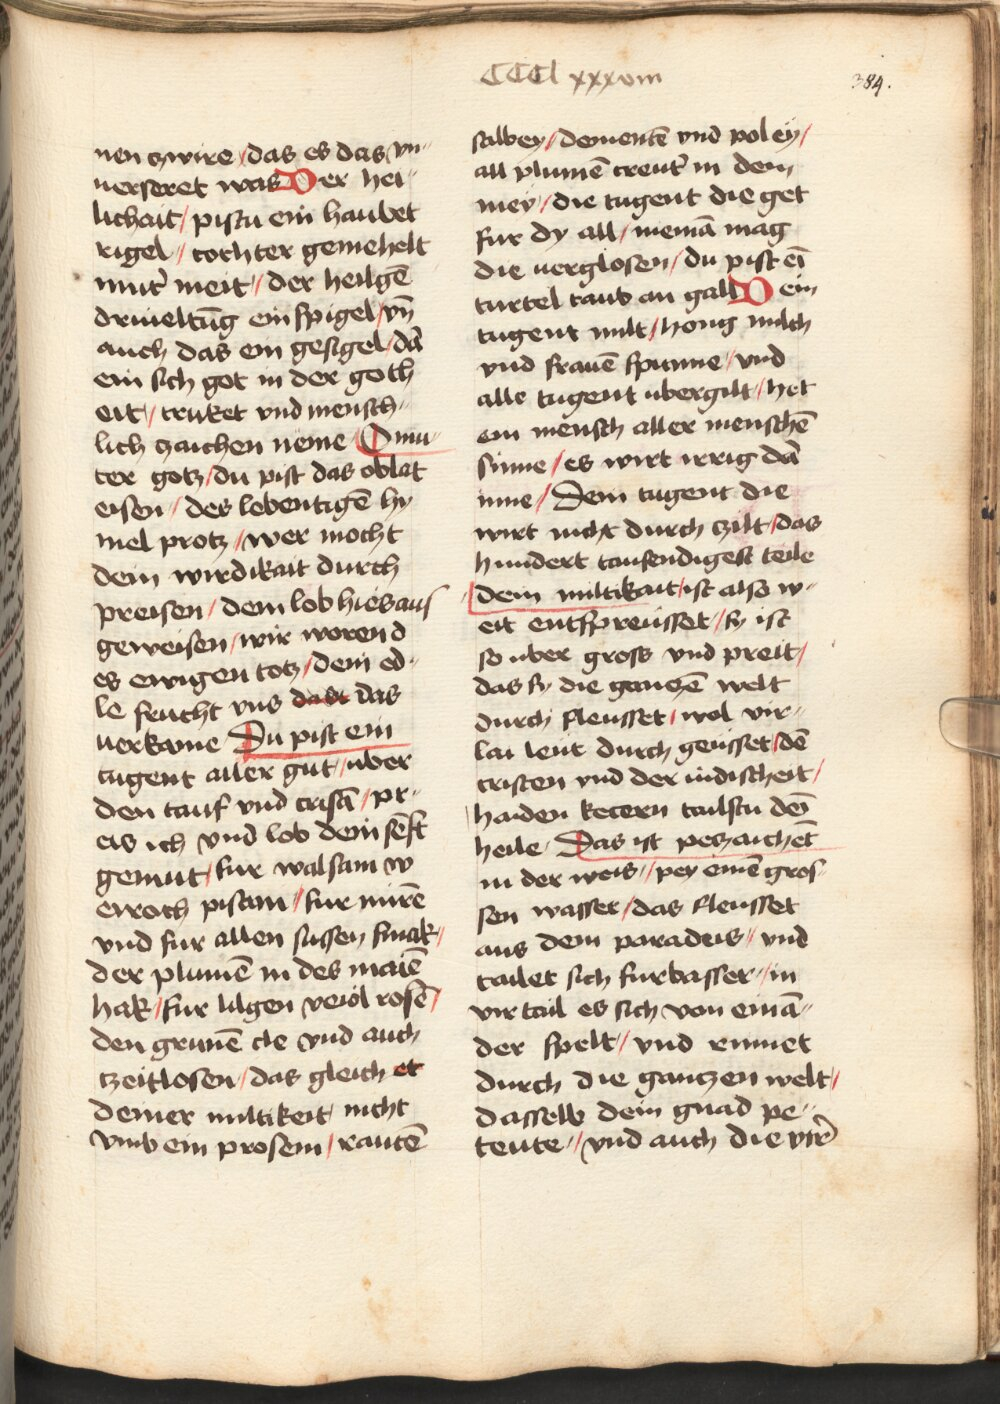 CCClxxxviii
384.
nen zwire / das es das vn-
uerseret was Der hei-
licheit / pistu ein haubet
rigel / tochter gemehelt
mut' meit / der heilgē
driueltūg ein spigel / vn̄
auch das ein gesigel / dā
ein sich got in der goth
eit / trucket vnd mensch-
lich zaichen neme / O mu-
ter gotz / du pist das oblat
eisen / des lebentigē hy
mel protz / wer mocht
dein wirdikait durch
preisen / dem lob hies aus
geweisen / wir worend
es ewigen totz / dein ed-
le frucht vns das das
verkame Du pist ein
tugent aller gut / uber
den tauf vnd crisā / pr-
eis ich vnd lob dein sēft
gemut / fur walsam w
eiroch pisam / fur mirē
vnd fur allen sussen smak /
der plumē in des maiē
hak / fur lilgen veiol rosē /
den grunē cle vnd auch
tzeitlosen / das gleichet
deiner miltikeit nicht
vmb ein prosem / rautē
salbey / dementē vnd poley /
all plumē creut' in dem
mey / die tugent die get
fur dy all / niemā mag
die uerglosen / du pist eī
turtel taub an gall Dein
tugent milt / honig milch
vnd frauē spunne / vnd
alle tugent ubergilt / het
ein mensch aller menschē
sinne / es wirt irrig dā
inne / Dein tugent die
wirt nicht durch zilt / das
hundert tausendigest teile
dein miltikait / ist also w-
eit entspreusset / sy ist
so uber gross vnd preit /
das sy die gantzē welt
durch fleusset / wol vir-
lai leut durch geusset / dē
cristen vnd der iudischeit /
haiden ketzern tailstu deī
heile Das ist pezaichēt
in der weis / pey einē gros-
sen wasser / das fleusset
aus dem paradeis / vnd
tailet sich furbasser / in
vir tail es sich von einā-
der spelt / vnd rinnet
durch die gantzen welt /
dasselb dein gnad pe-
teute / vnd auch die vir'